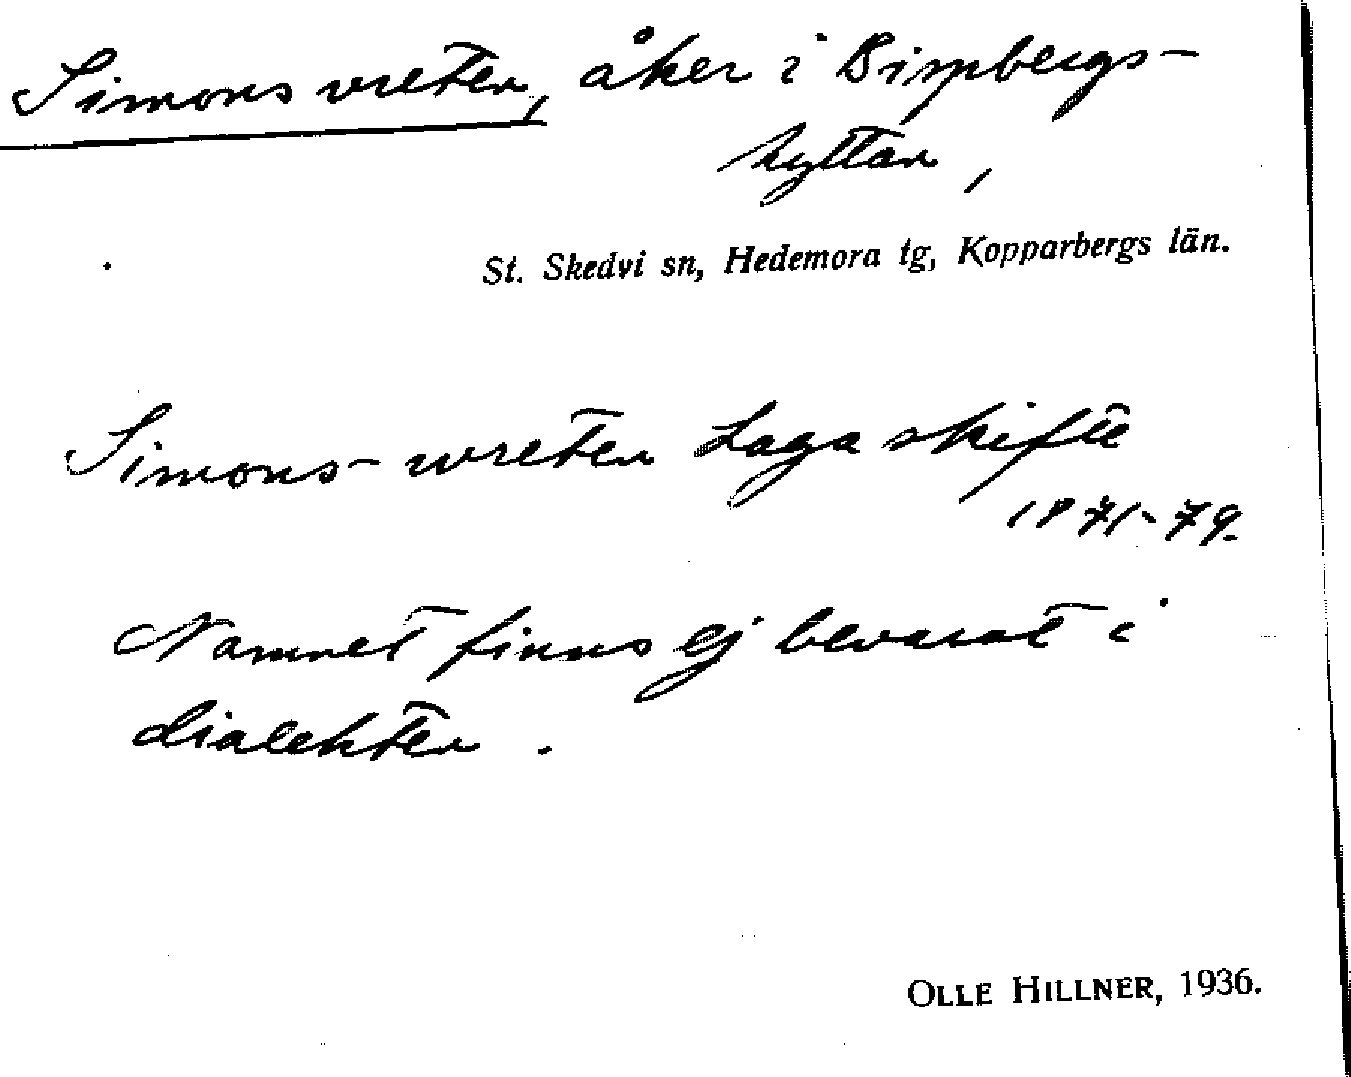 Simonsvreten, åker i Bispbergs-
hyttan,
St. Skedvi sn, Hedemora tg, Kopparbergs län.
Simons-wreten Laga skifte
1871-79.
Namnet finns ej bevarat i
dialekten.
OLLE HILLNER, 1936.